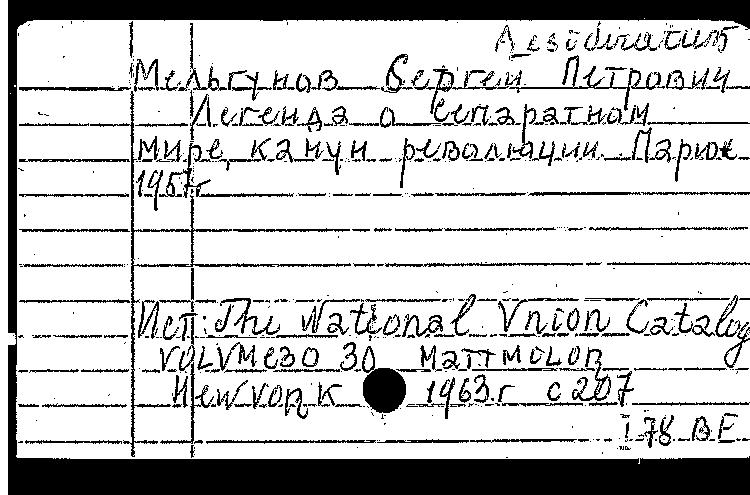 Desideratum
Мельгунов Сергей Петрович
Легенда о сепаратном
мире, канун революции. Париж
1957г
Ист: The National Union Catalog
VOLVMe30 30 Mattmolon
New York 1963.г с 207
I 78 BE